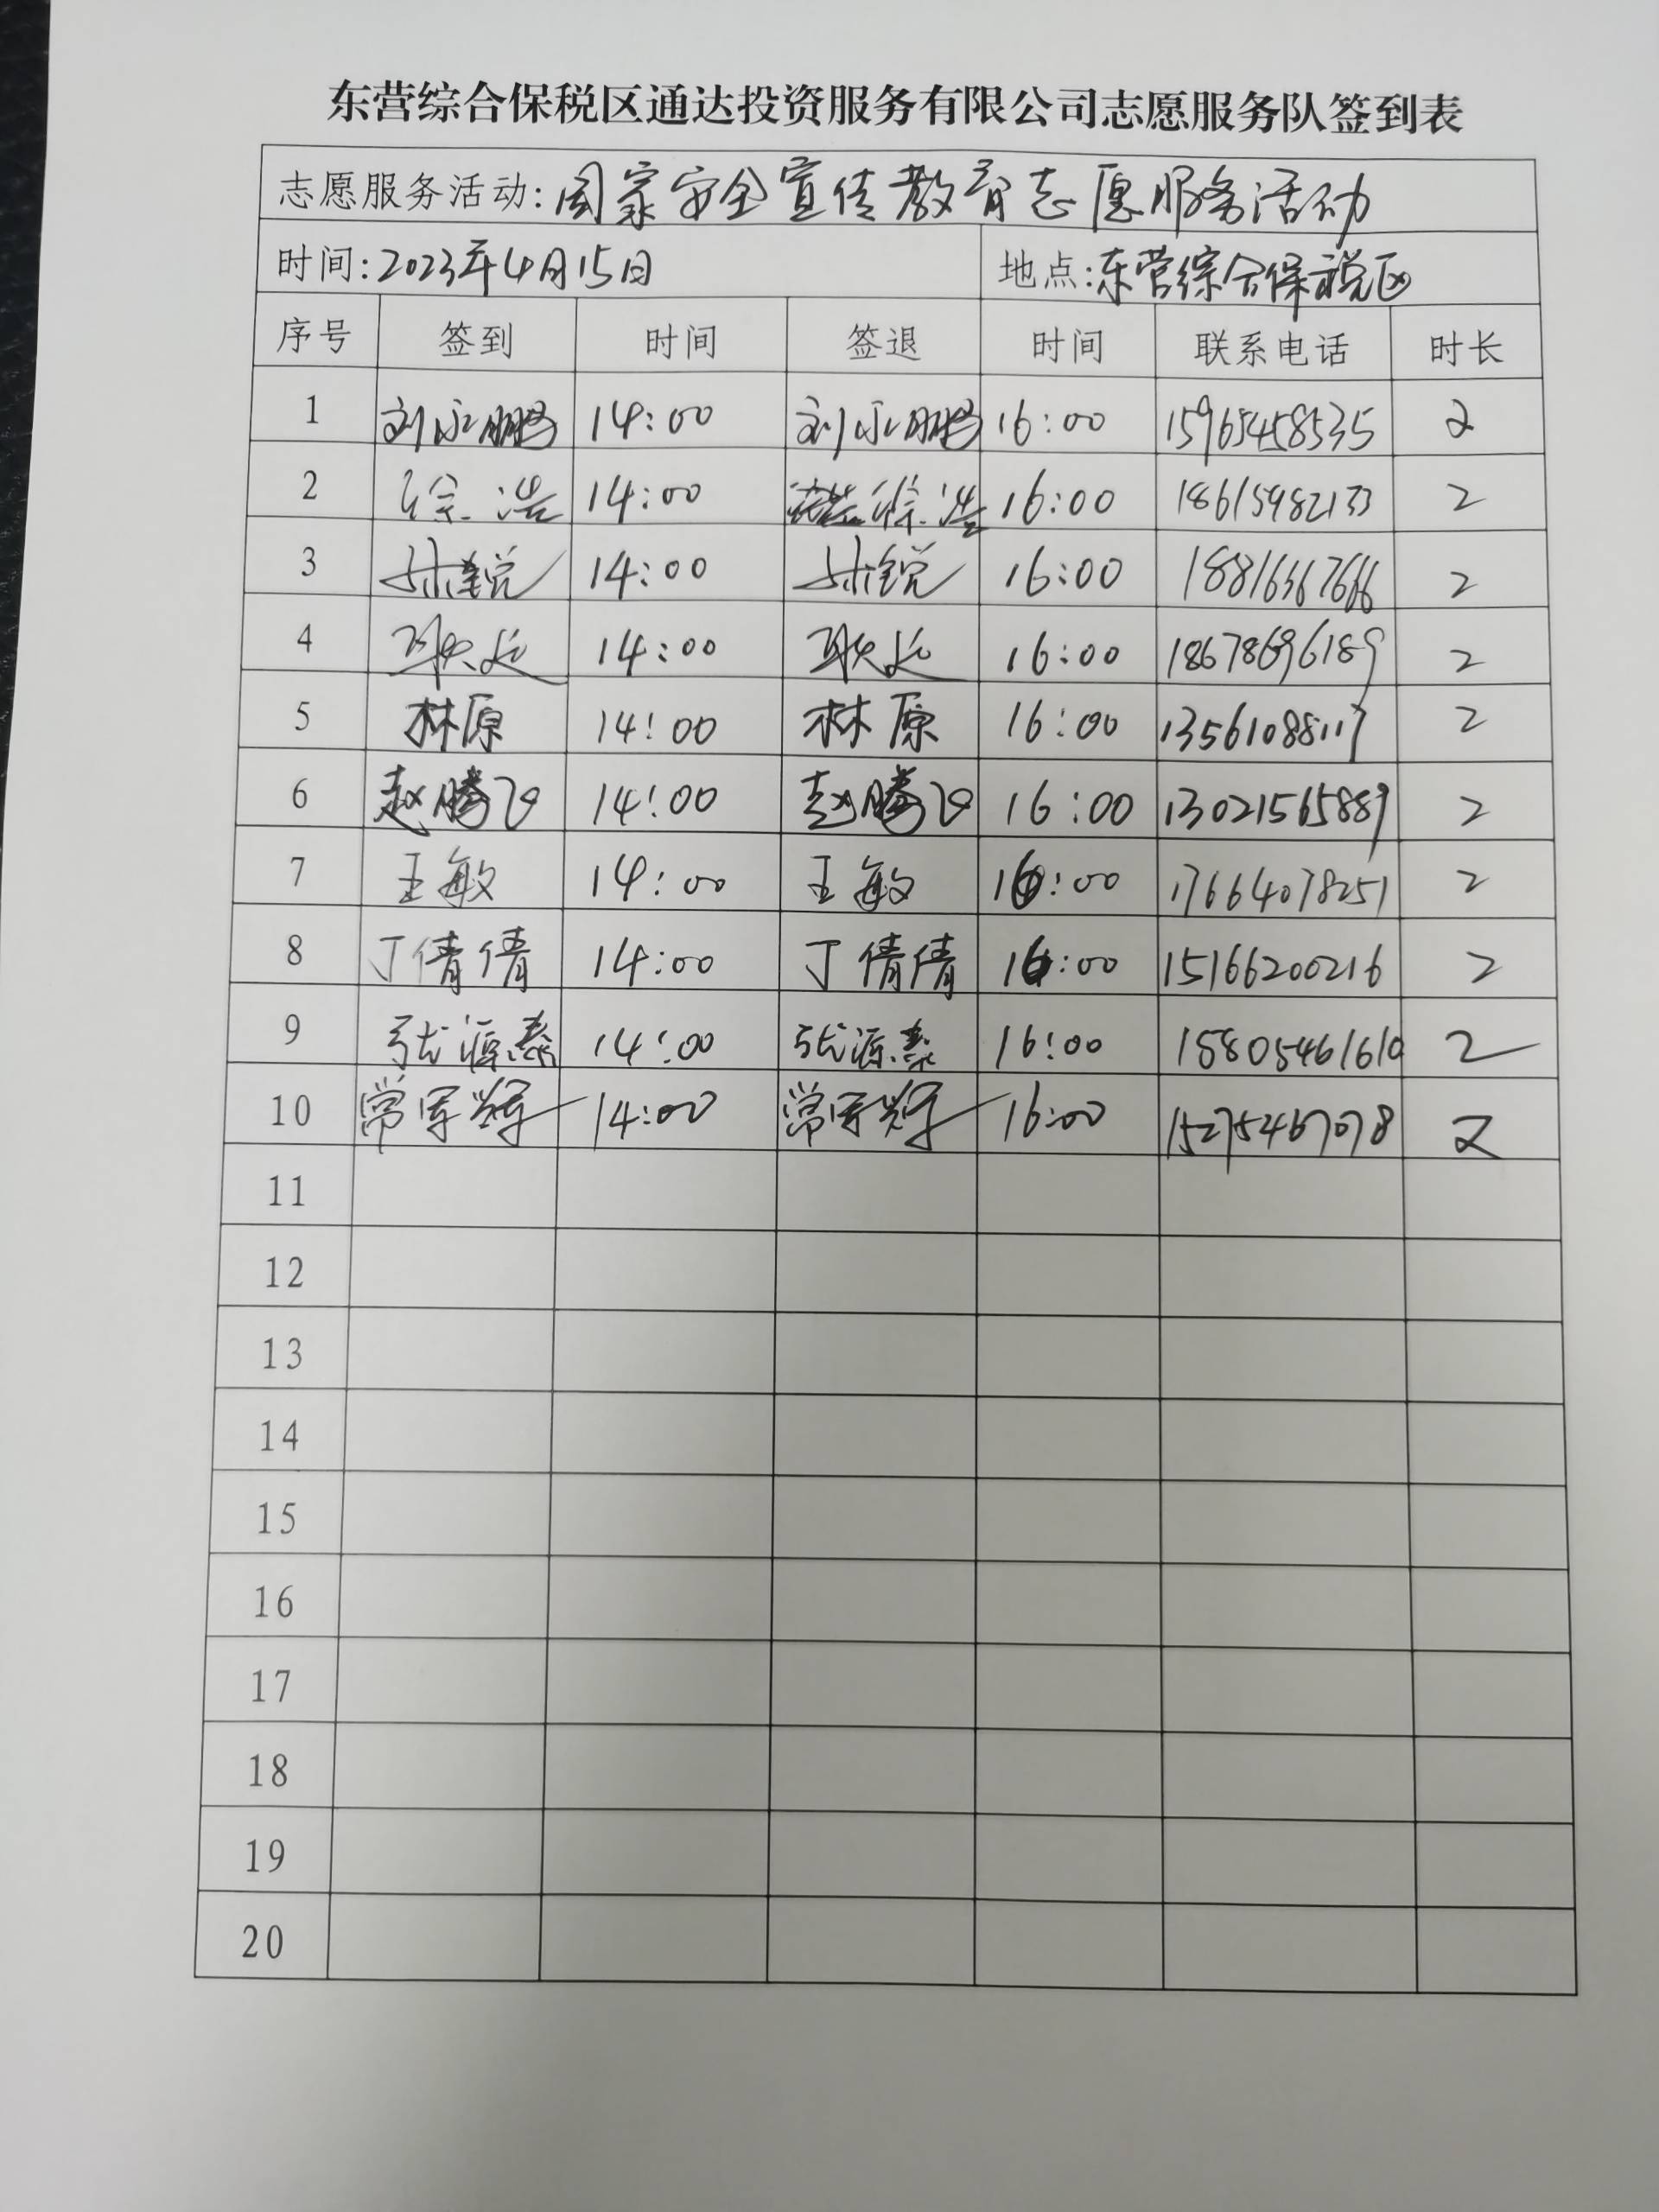 东营综合保税区通达投资服务有限公司志愿服务队签到表
志愿服务活动:国家安全宣传教育志愿服务活动
时间:2023年4月15日 地点:东营综合保税区
序号 签到 时间 签退 时间 联系电话 时长
1 刘永鹏 14:00 刘永鹏 16:00 15965458535 2
2 徐浩 14:00 徐浩 16:00 18615982133 2
3 14:00 16:00 2
4 耿延 14:00 耿延 16:00 18678696189 2
5 林原 14:00 林原 16:00 13561088117 2
6 赵腾飞 14:00 赵腾飞 16:00 13021565889 2
7 王敏 14:00 王敏 16:00 17664078251 2
8 丁倩倩 14:00 丁倩倩 16:00 15166200216 2
9 张源泰 14:00 张源泰 16:00 15805461610 2
10 常军辉 14:00 常军辉 16:00 15275467078 2
11
12
13
14
15
16
17
18
19
20